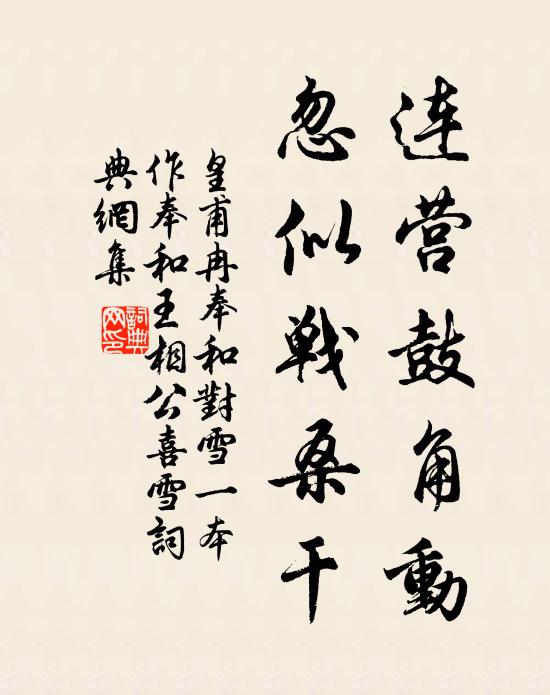 连营鼓角動
忽似戦桑干
皇甫冉奉和對雪一本
作奉和王相公喜雪詞
典網集
詞典网印